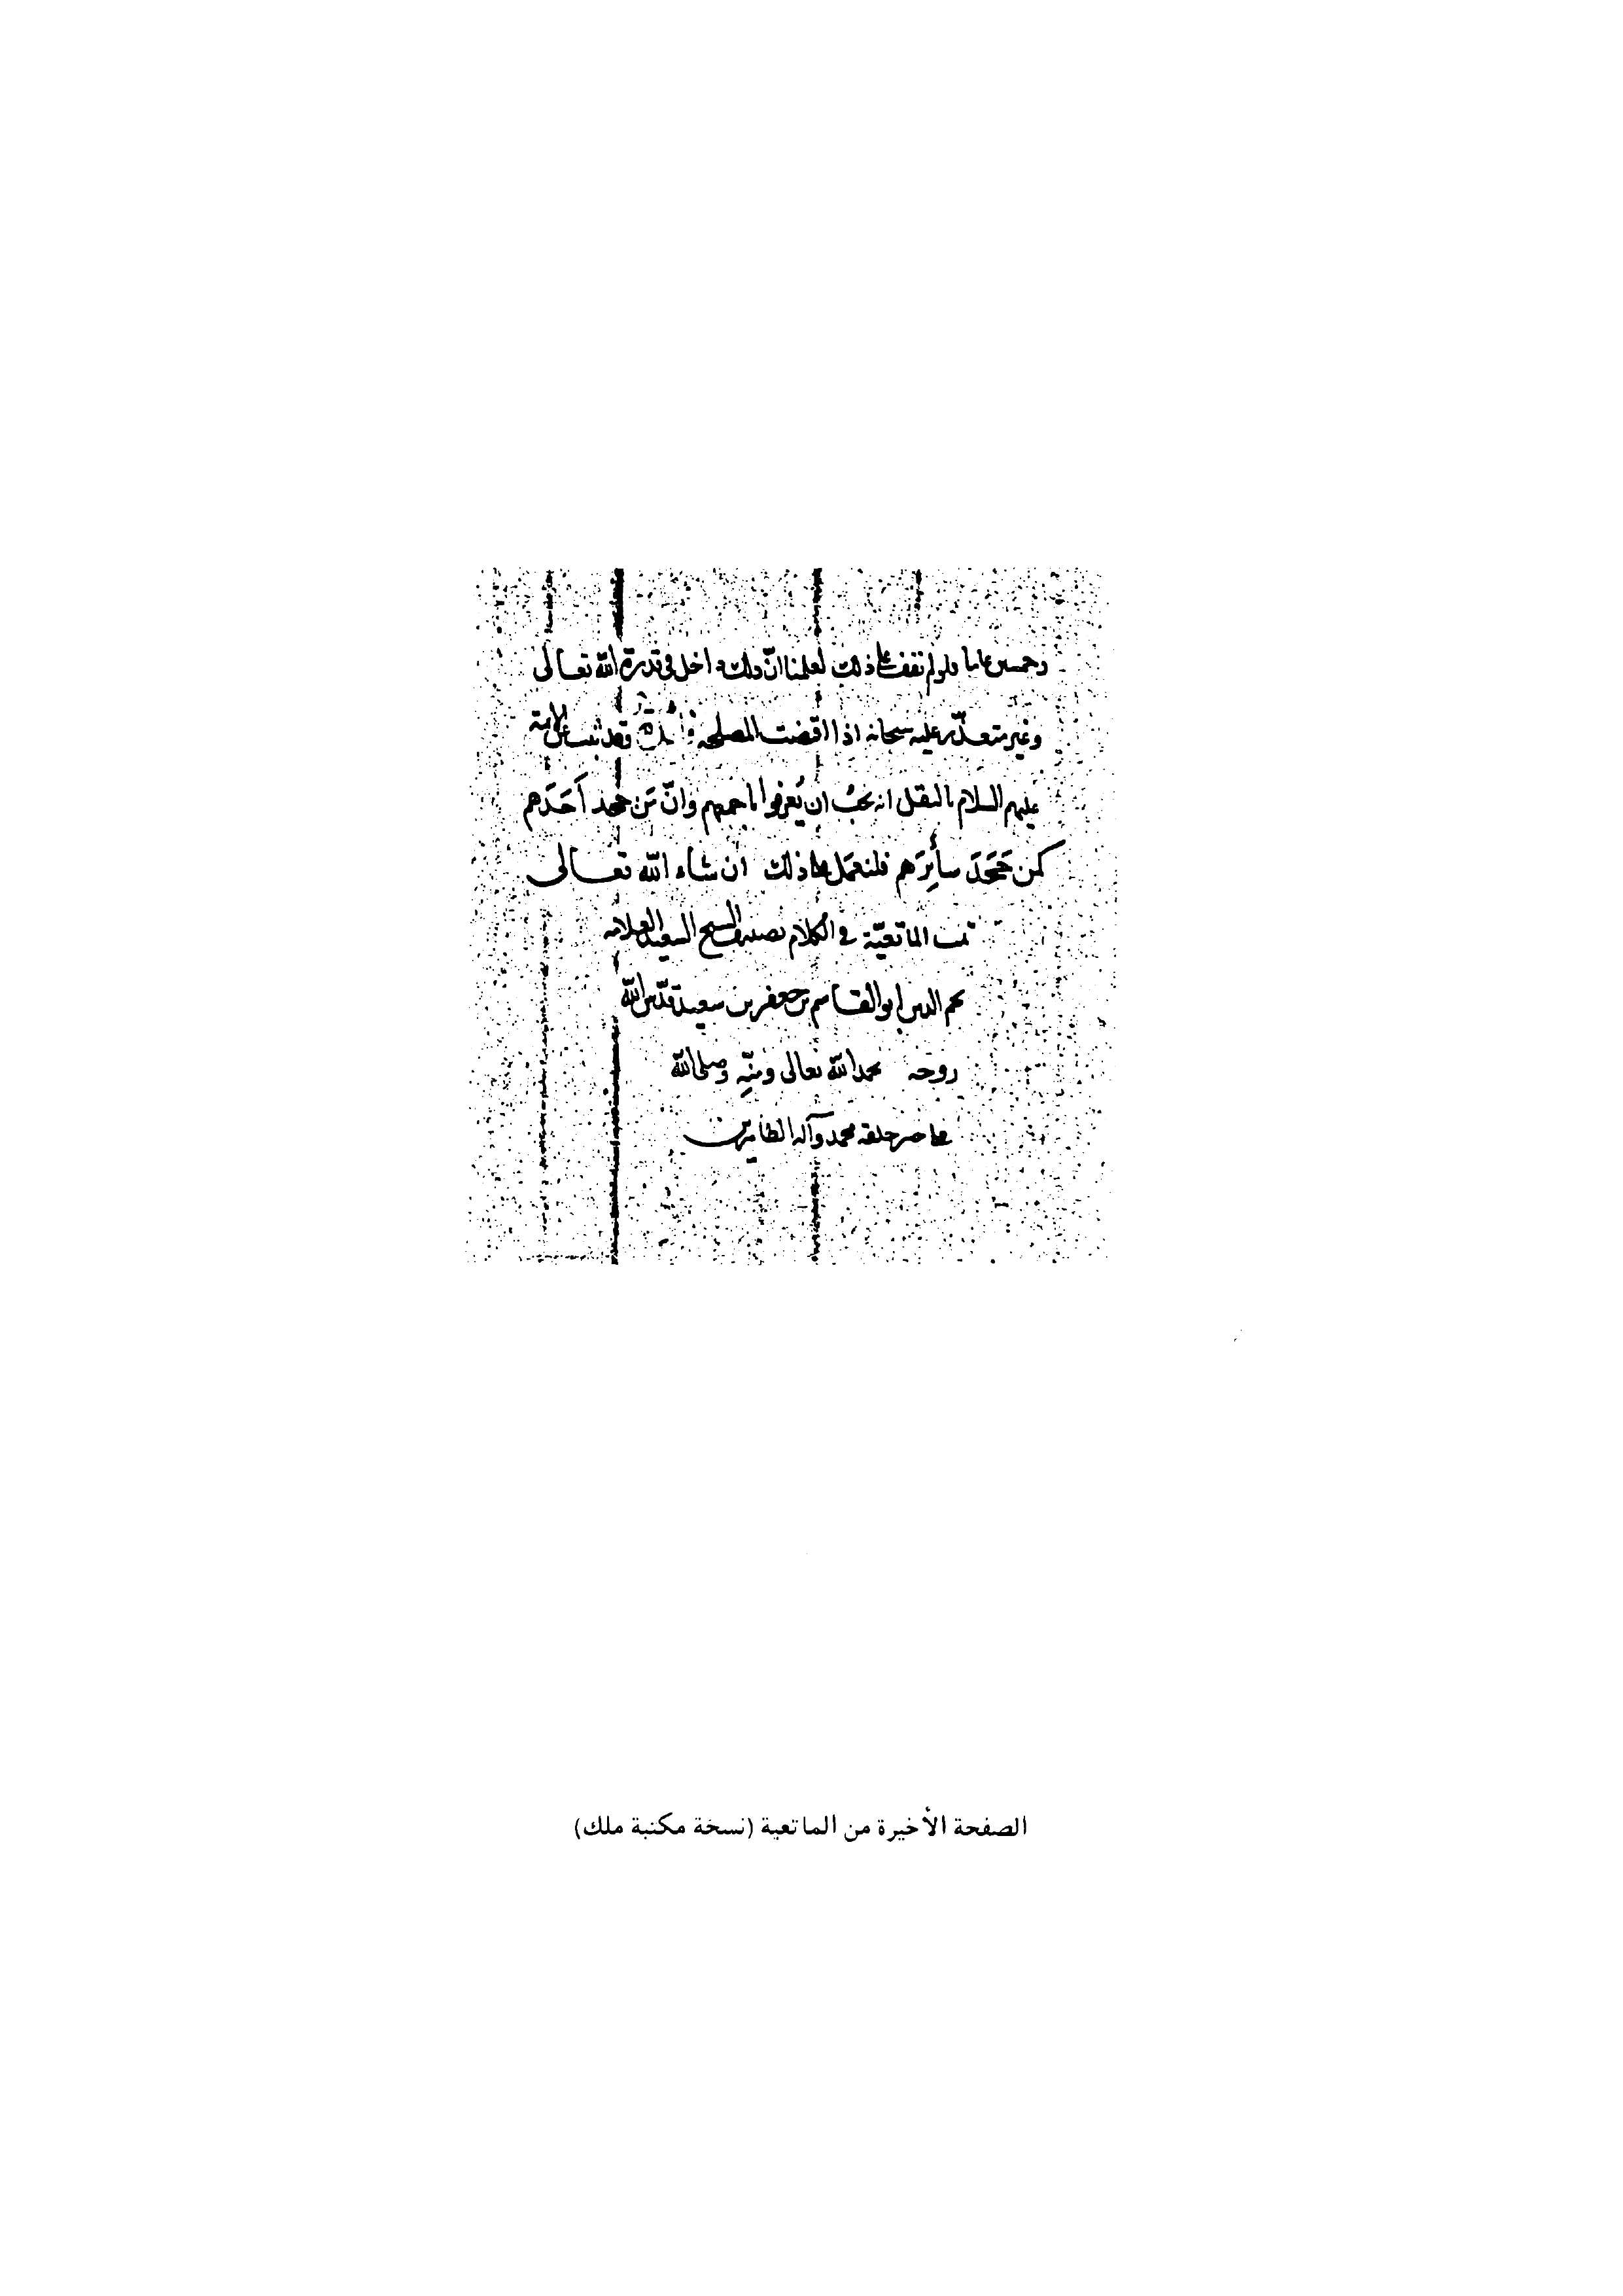 وخمسين عاما ولو لم نقف على ذلك لعلمنا انّ ذلك داخل في قدرة الله تعالى
وغير متعذّر عليه سبحانه اذا اقتضت المصلحة ذلك وقد ثبت عن الائمة
عليهم السلام بالنقل انه يجبُ ان يُعرفوا باجمعهم وانّ مَن جحد اَحَدَهم
كمن جَحَدَ سائِرَهم فلنعمَل على ذلك ان شاء الله تعالى
تمت الماتعيّة في الكلام تصنيف الشيخ السعيد العلامه
نجم الدين ابو القاسم بن جعفر بن سعيد قدّس الله
روحه بحمد الله تعالى ومنّه وصلى الله
على خير خلقه محمد وآله الطاهرين
الصفحة الأخيرة من الماتعية (نسخة مكتبة ملك)